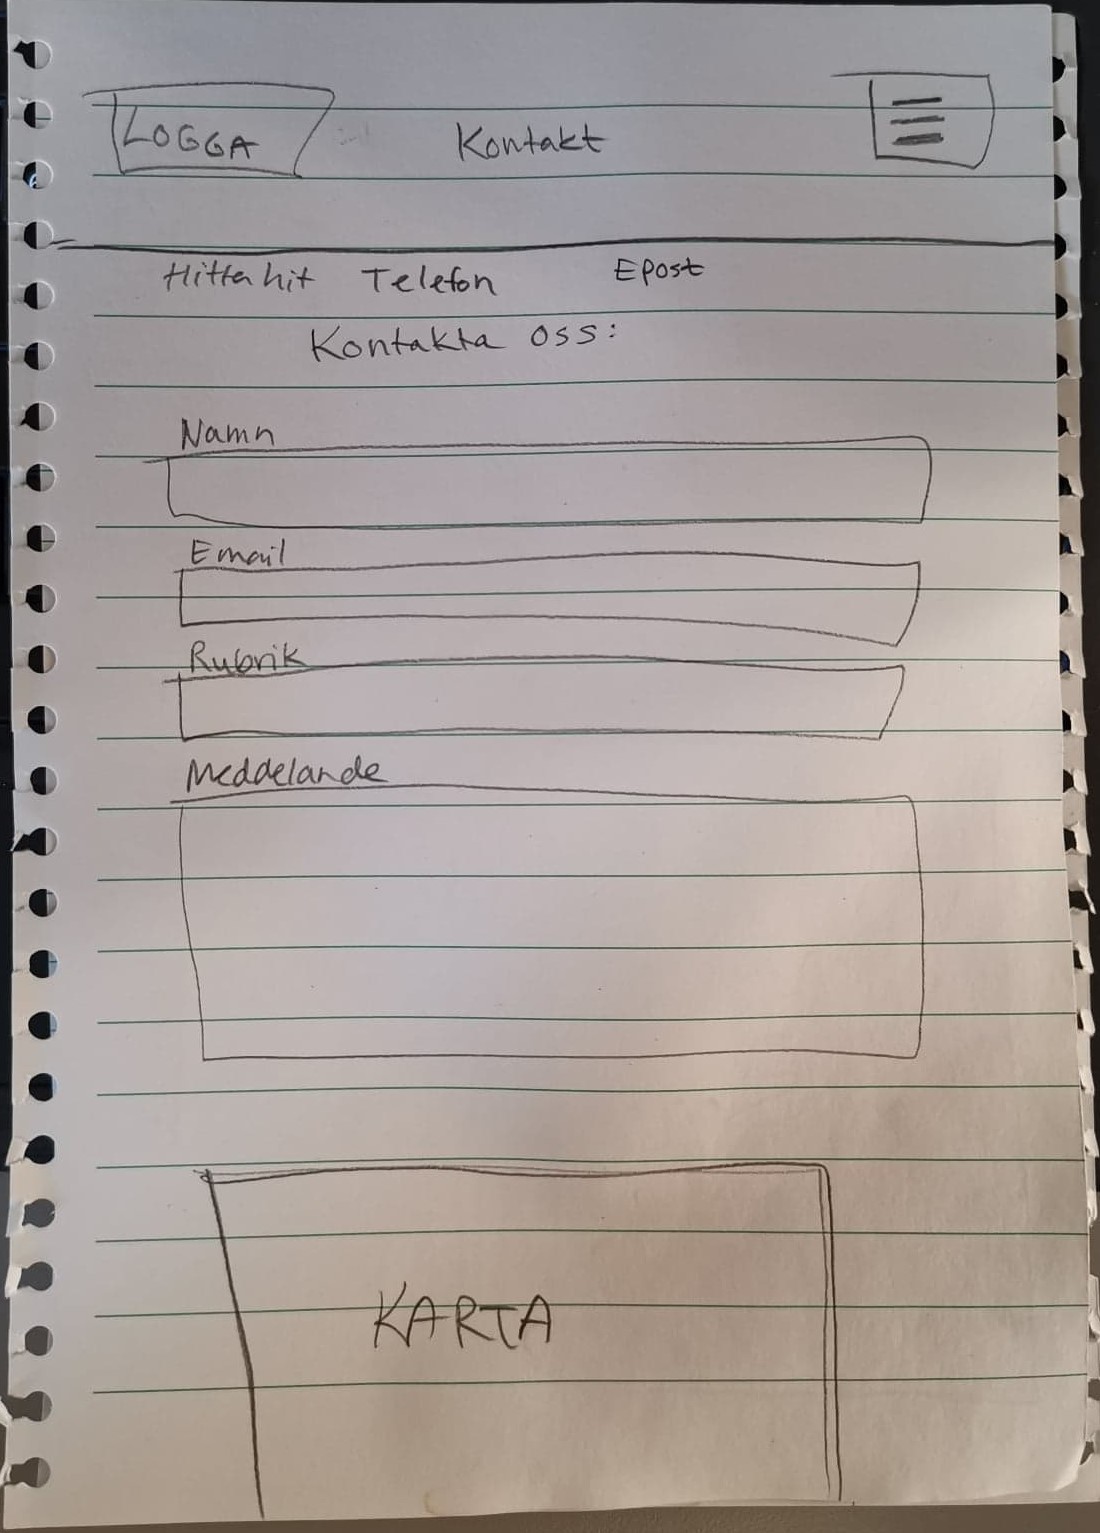 LOGGA Kontakt
Hitta hit Telefon Epost
Kontakta oss:
Namn
Email
Rubrik
Meddelande
KARTA